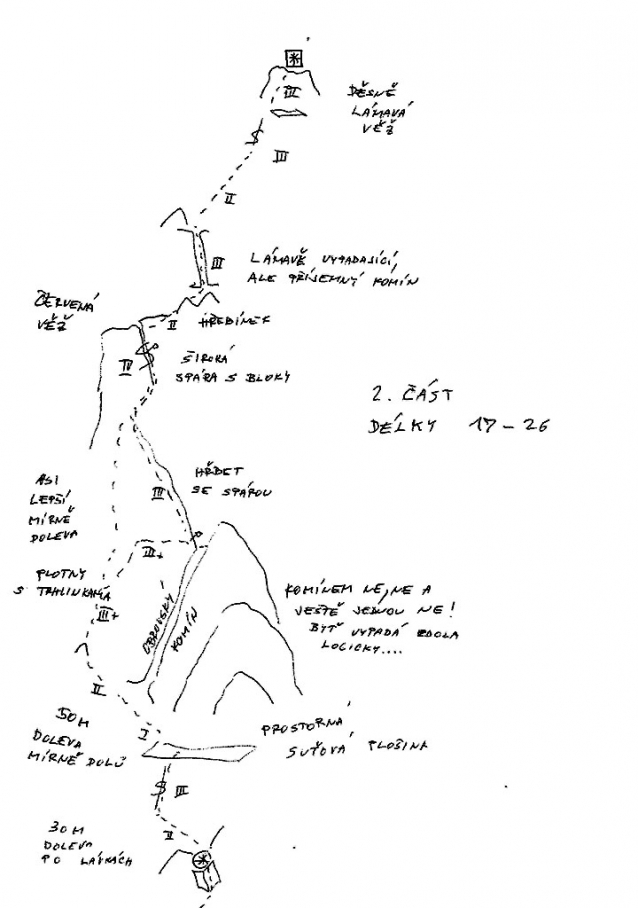 IV
DĚSNĚ
LÁMAVÁ
VĚŽ
III
II
III
LÁMAVĚ VYPADAJÍCÍ,
ALE PŘÍJEMNÝ KOMÍN
ČERVENÁ
VĚŽ
II HŘEBÍNEK
IV
ŠIROKÁ
SPÁRA S BLOKY
2. ČÁST
DÉLKY 17-26
HŘBET
SE SPÁROU
III
ASI
LEPŠÍ
MÍRNĚ
DOLEVA
III+
PLOTNY
S TRHLINKAMA
III+
OBROVSKÝ
KOMÍN
KOMÍNEM NE, NE A
JEŠTĚ JEDNOU NE!
BYŤ VYPADÁ ZDOLA
LOGICKY....
II
50M
DOLEVA
MÍRNĚ DOLŮ
I
PROSTORNÁ
SUŤOVÁ PLOŠINA
III
II
30M
DOLEVA
PO LÁVKÁCH